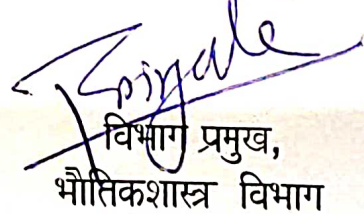 विभाग प्रमुख,
भौतिकशास्त्र विभाग